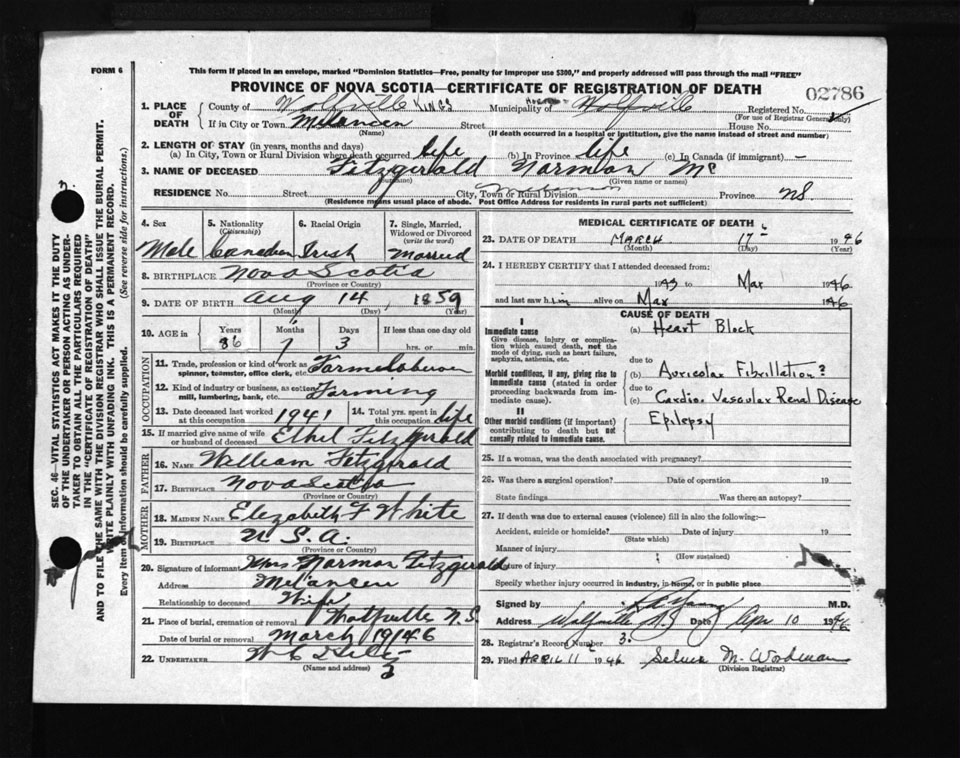 FORM 6
This form if placed in an envelope, marked "Dominion Statistics—Free, penalty for improper use $300," and properly addressed will pass through the mail "FREE"
PROVINCE OF NOVA SCOTIA—CERTIFICATE OF REGISTRATION OF DEATH
02786
1. PLACE OF DEATH
County of Wolfville KINGS Municipality of Wolfville Registered No.
(For use of Registrar General only)
If in City or Town Melancen Street House No.
(Name) (If death occurred in a hospital or institution, give name instead of street and number)
2. LENGTH OF STAY (in years, months and days)
(a) In City, Town or Rural Division where death occurred life (b) In Province life (c) In Canada (if immigrant) –
3. NAME OF DECEASED Fitzgerald Norman Mc
(Surname) (Given name or names)
RESIDENCE No. Street City, Town or Rural Division Province NS.
(Residence means usual place of abode. Post Office Address for residents in rural parts not sufficient)
4. Sex
Male
5. Nationality (Citizenship)
Canadian
6. Racial Origin
Irish
7. Single, Married, Widowed or Divorced (write the word)
Married
8. BIRTHPLACE Nova Scotia
(Province or Country)
9. DATE OF BIRTH Aug 14, 1859
(Month) (Day) (Year)
10. AGE in Years Months Days If less than one day old
86 7 3 hrs. or min.
OCCUPATION
11. Trade, profession or kind of work as spinner, teamster, office clerk, etc. Farm Laborer
12. Kind of industry or business, as cotton mill, lumbering, bank, etc. Farming
13. Date deceased last worked at this occupation 1941
14. Total yrs. spent in this occupation life
15. If married give name of wife or husband of deceased Ethel Fitzgerald
FATHER
16. NAME William Fitzgerald
17. BIRTHPLACE Nova Scotia
(Province or Country)
MOTHER
18. MAIDEN NAME Elizabeth F White
19. BIRTHPLACE U.S.A.
(Province or Country)
20. Signature of informant Mrs Norman Fitzgerald
Address Melancen
Relationship to deceased Wife
21. Place of burial, cremation or removal Wolfville N.S.
Date of burial or removal March 19 1946
22. UNDERTAKER
(Name and address)
MEDICAL CERTIFICATE OF DEATH
23. DATE OF DEATH MARCH 17 1946
(Month) (Day) (Year)
24. I HEREBY CERTIFY that I attended deceased from:
1943 to Mar 1946
and last saw him alive on Mar 1946
CAUSE OF DEATH
I
Immediate cause
Give disease, injury or complication which caused death, not the mode of dying, such as heart failure, asphyxia, asthenia, etc.
(a) Heart Block
due to
Morbid conditions, if any, giving rise to immediate cause (stated in order proceeding backwards from immediate cause).
(b) Auricular Fibrillation?
due to
(c) Cardio Vascular Renal Disease
II
Other morbid conditions (if important) contributing to death but not causally related to immediate cause.
Epilepsy
25. If a woman, was the death associated with pregnancy?
26. Was there a surgical operation? Date of operation 19
State findings Was there an autopsy?
27. If death was due to external causes (violence) fill in also the following:—
Accident, suicide or homicide? Date of injury 19
(State which)
Manner of injury
(How sustained)
Nature of injury
Specify whether injury occurred in industry, in home, or in public place
Signed by M.D.
Address Wolfville N.S. Date Apr 10 1946
28. Registrar's Record Number 3.
29. Filed APRIL 11 1946 Selina M. Woodman
(Division Registrar)
SEC. 46—VITAL STATISTICS ACT MAKES IT THE DUTY OF THE UNDERTAKER OR PERSON ACTING AS UNDERTAKER TO OBTAIN ALL THE PARTICULARS REQUIRED IN THE "CERTIFICATE OF REGISTRATION OF DEATH" AND TO FILE THE SAME WITH THE DIVISION REGISTRAR WHO SHALL ISSUE THE BURIAL PERMIT.
WRITE PLAINLY WITH UNFADING INK. THIS IS A PERMANENT RECORD.
Every item of information should be carefully supplied. (See reverse side for instructions.)